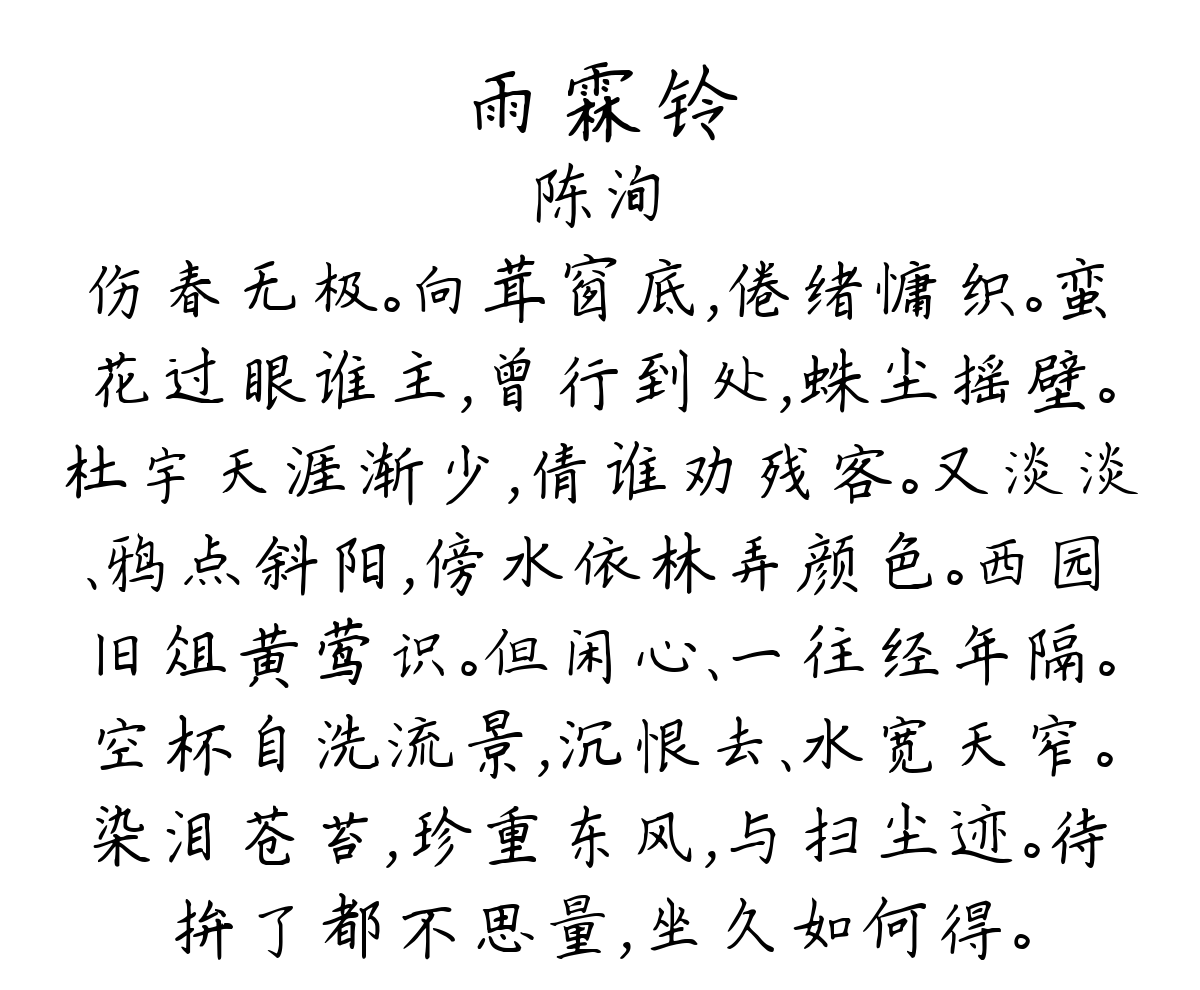 雨霖铃
陈洵
伤春无极。向茸窗底,倦绪慵织。蛮
花过眼谁主,曾行到处,蛛尘摇壁。
杜宇天涯渐少,倩谁劝残客。又淡淡
、鸦点斜阳,傍水依林弄颜色。西园
旧俎黄莺识。但闲心、一往经年隔。
空杯自洗流景,沉恨去、水宽天窄。
染泪苍苔,珍重东风,与扫尘迹。待
拚了都不思量,坐久如何得。